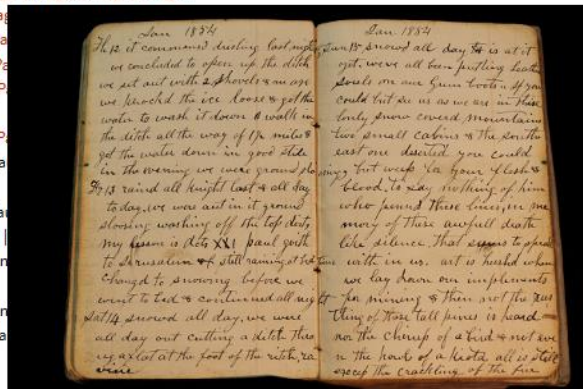 Jan 1884
Th 12 it commenced drisling last night
we concluded to open up the ditch
we set out with 2 Shovels & an axe
we knocked the ice loose & got the
water to wash it down & walk in
the ditch all the way of 1½ miles &
got the water down in good stile
in the evening we were ground
Fr 13 rained all knight last & all day
to day. we were out in it ground
sloosing washing off the top dirt,
my lesson is Acts XXI paul goith
to Jerusalem & still raining at bed time
changd to snowing before we
went to bed & continued all night
Sat 14 snowd all day, we were
all day out cutting a ditch thro
ug a lot at the foot of the
vine
Jan 1884
Sun 15 snowd all day & is at it
yet. we've all been putting leather
soles on our Gum boots & if you
could but see us as we are in these
lonly snow coverd mountains
two small cabins & the south
east one deserted you could
but weep for your flesh &
blood, to say nothing of him
who pened these lines, in me
mory of these awfull death
like silence. that seems to
with in us. art is hushd when
we lay down our implements
for mineing & then not the rus
tling of those tall pines is heard
nor the chirup of a bird & not eve
n the howl of a kiota all is still
excep the crackling of the fire